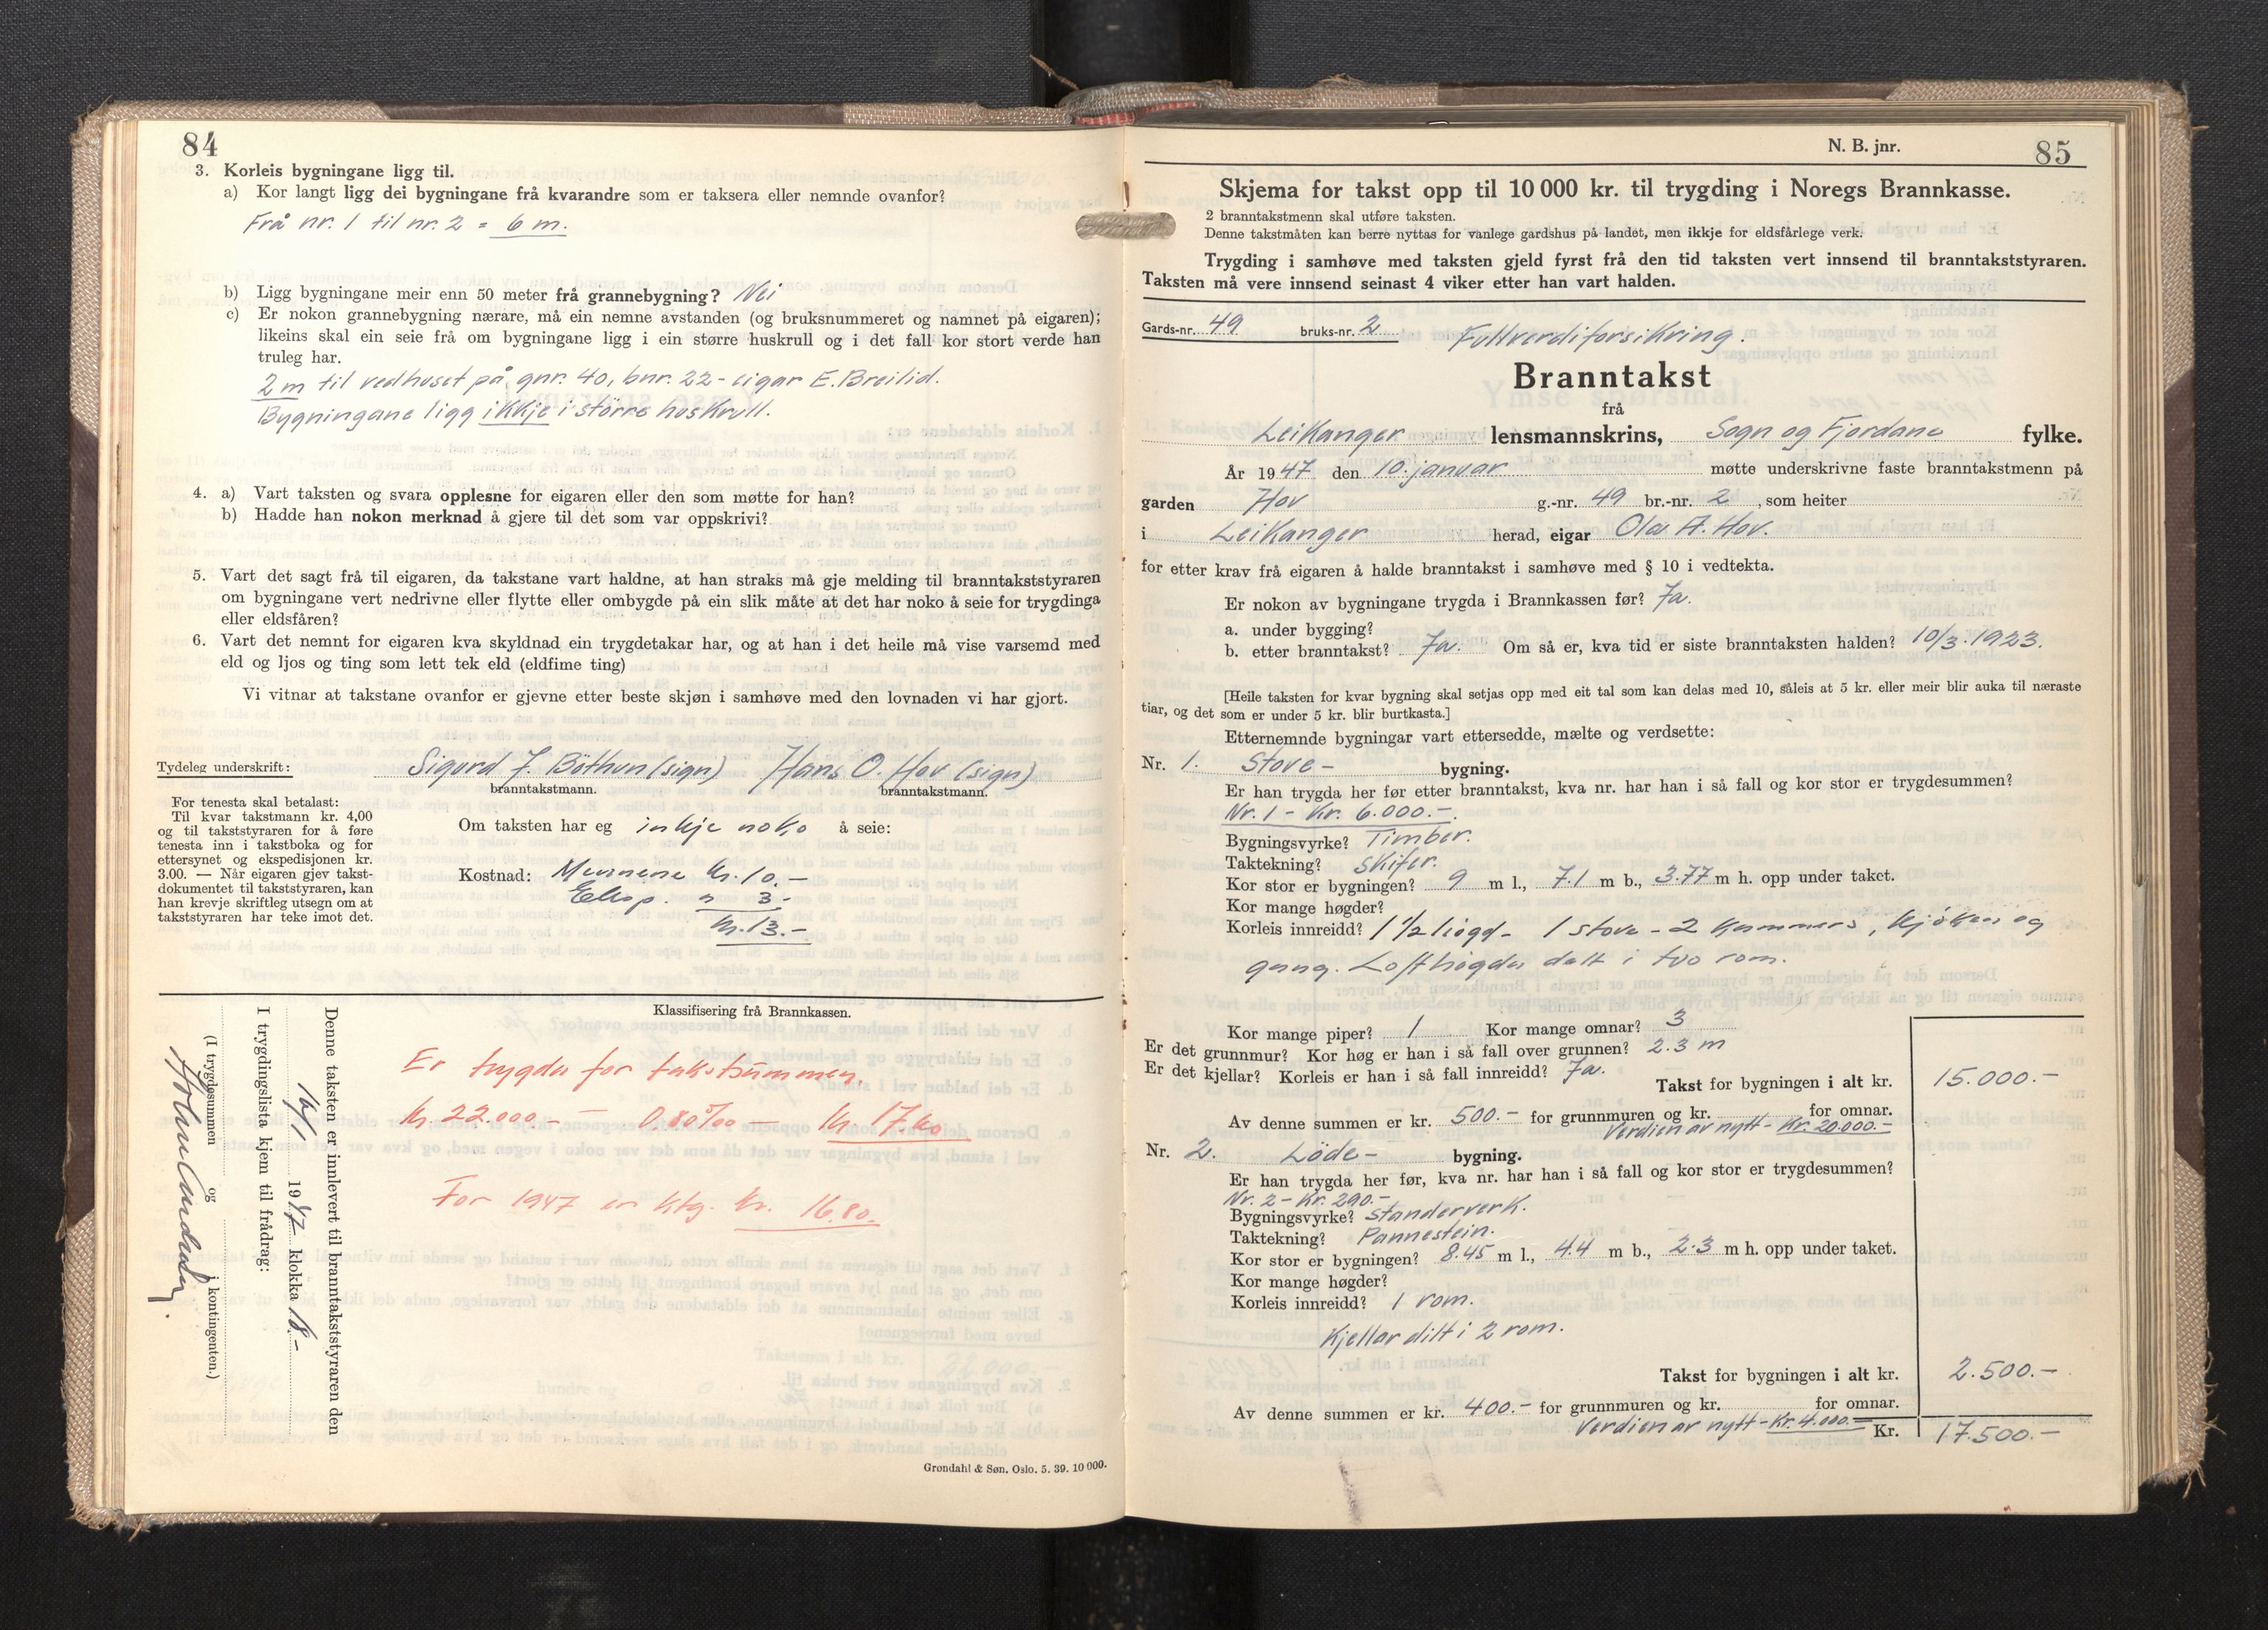 84
3. Korleis bygningane ligg til.
a) Kor langt ligg dei bygningane frå kvarandre som er taksera eller nemnde ovanfor?
Frå nr. 1 til nr. 2 = 6 m.
b) Ligg bygningane meir enn 50 meter frå grannebygning? Nei
c) Er nokon grannebygning nærare, må ein nemne avstanden (og bruksnummeret og namnet på eigaren);
likeins skal ein seie frå om bygningane ligg i ein større huskrull og i det fall kor stort verde han
truleg har.
2 m til vedhuset på gnr. 40, bnr. 22 - eigar E. Breilid.
Bygningane ligg ikkje i större huskrull.
4. a) Vart taksten og svara opplesne for eigaren eller den som møtte for han?
b) Hadde han nokon merknad å gjere til det som var oppskrivi?
5. Vart det sagt frå til eigaren, da takstane vart haldne, at han straks må gje melding til branntakststyraren
om bygningane vert nedrivne eller flytte eller ombygde på ein slik måte at det har noko å seie for trygdinga
eller eldsfåren?
6. Vart det nemnt for eigaren kva skyldnad ein trygdetakar har, og at han i det heile må vise varsemd med
eld og ljos og ting som lett tek eld (eldfime ting)
Vi vitnar at takstane ovanfor er gjevne etter beste skjøn i samhøve med den lovnaden vi har gjort.
Tydeleg underskrift: Sigurd J. Böthun (sign) Hans O. Hov (sign)
branntakstmann. branntakstmann.
For tenesta skal betalast:
Til kvar takstmann kr. 4,00
og til takststyraren for å føre
tenesta inn i takstboka og for
ettersynet og ekspedisjonen kr.
3.00. — Når eigaren gjev takst-
dokumentet til takststyraren, kan
han krevje skriftleg utsegn om at
takststyraren har teke imot det.
Om taksten har eg inkje noko å seie:
Kostnad: Mennene kr. 10.-
Eksp. " 3.-
kr. 13.-
Klassifisering frå Brannkassen.
Er trygda for takstsummen,
kr. 22.000.- — 0.80 ‰ — kr. 17.60
For 1947 er ktg. kr. 16.80.
Denne taksten er innlevert til branntakststyraren den
16/1 1947 klokka 18.-
I trygdingslista kjem til frådrag:
(I trygdesummen og i kontingenten.)
Grøndahl & Søn. Oslo. 5. 39. 10 000.
N. B. jnr. 85
Skjema for takst opp til 10 000 kr. til trygding i Noregs Brannkasse.
2 branntakstmenn skal utføre taksten.
Denne takstmåten kan berre nyttas for vanlege gardshus på landet, men ikkje for eldsfårlege verk.
Trygding i samhøve med taksten gjeld fyrst frå den tid taksten vert innsend til branntakststyraren.
Taksten må vere innsend seinast 4 viker etter han vart halden.
Gards-nr. 49 bruks-nr. 2 Fullverdiforsikring.
Branntakst
frå
Leikanger lensmannskrins, Sogn og Fjordane fylke.
År 1947 den 10. januar møtte underskrivne faste branntakstmenn på
garden Hov g.-nr. 49 br.-nr. 2, som heiter
i Leikanger herad, eigar Ola A. Hov.
for etter krav frå eigaren å halde branntakst i samhøve med § 10 i vedtekta.
Er nokon av bygningane trygda i Brannkassen før? Ja.
a. under bygging?
b. etter branntakst? Ja. Om så er, kva tid er siste branntaksten halden? 10/3. 1923.
[Heile taksten for kvar bygning skal setjas opp med eit tal som kan delas med 10, såleis at 5 kr. eller meir blir auka til næraste
tiar, og det som er under 5 kr. blir burtkasta.]
Etternemnde bygningar vart ettersedde, mælte og verdsette:
Nr. 1. Stove - bygning.
Er han trygda her før etter branntakst, kva nr. har han i så fall og kor stor er trygdesummen?
Nr. 1 - Kr. 6.000.-
Bygningsvyrke? Timber.
Taktekning? Skifer.
Kor stor er bygningen? 9 m l., 7.1 m b., 3.77 m h. opp under taket.
Kor mange høgder?
Korleis innreidd? 1 1/2 högd - 1 stove - 2 kammers, kjøken og
gang. Lofthögda delt i tvo rom.
Kor mange piper? 1 Kor mange omnar? 3
Er det grunnmur? Kor høg er han i så fall over grunnen? 2.3 m
Er det kjellar? Korleis er han i så fall innreidd? Ja.
Takst for bygningen i alt kr. 15.000.-
Av denne summen er kr. 500.- for grunnmuren og kr. for omnar.
Verdien av nytt - Kr. 20.000.-
Nr. 2. Löde - bygning.
Er han trygda her før, kva nr. har han i så fall og kor stor er trygdesummen?
Nr. 2 - Kr. 290.-
Bygningsvyrke? Standerverk.
Taktekning? Pannestein.
Kor stor er bygningen? 8.45 m l., 4.4 m b., 2.3 m h. opp under taket.
Kor mange høgder?
Korleis innreidd? 1 rom.
Kjellar dilt i 2 rom.
Takst for bygningen i alt kr. 2.500.-
Av denne summen er kr. 400.- for grunnmuren og kr. for omnar.
Verdien av nytt - Kr. 4.000.-
Kr. 17.500.-